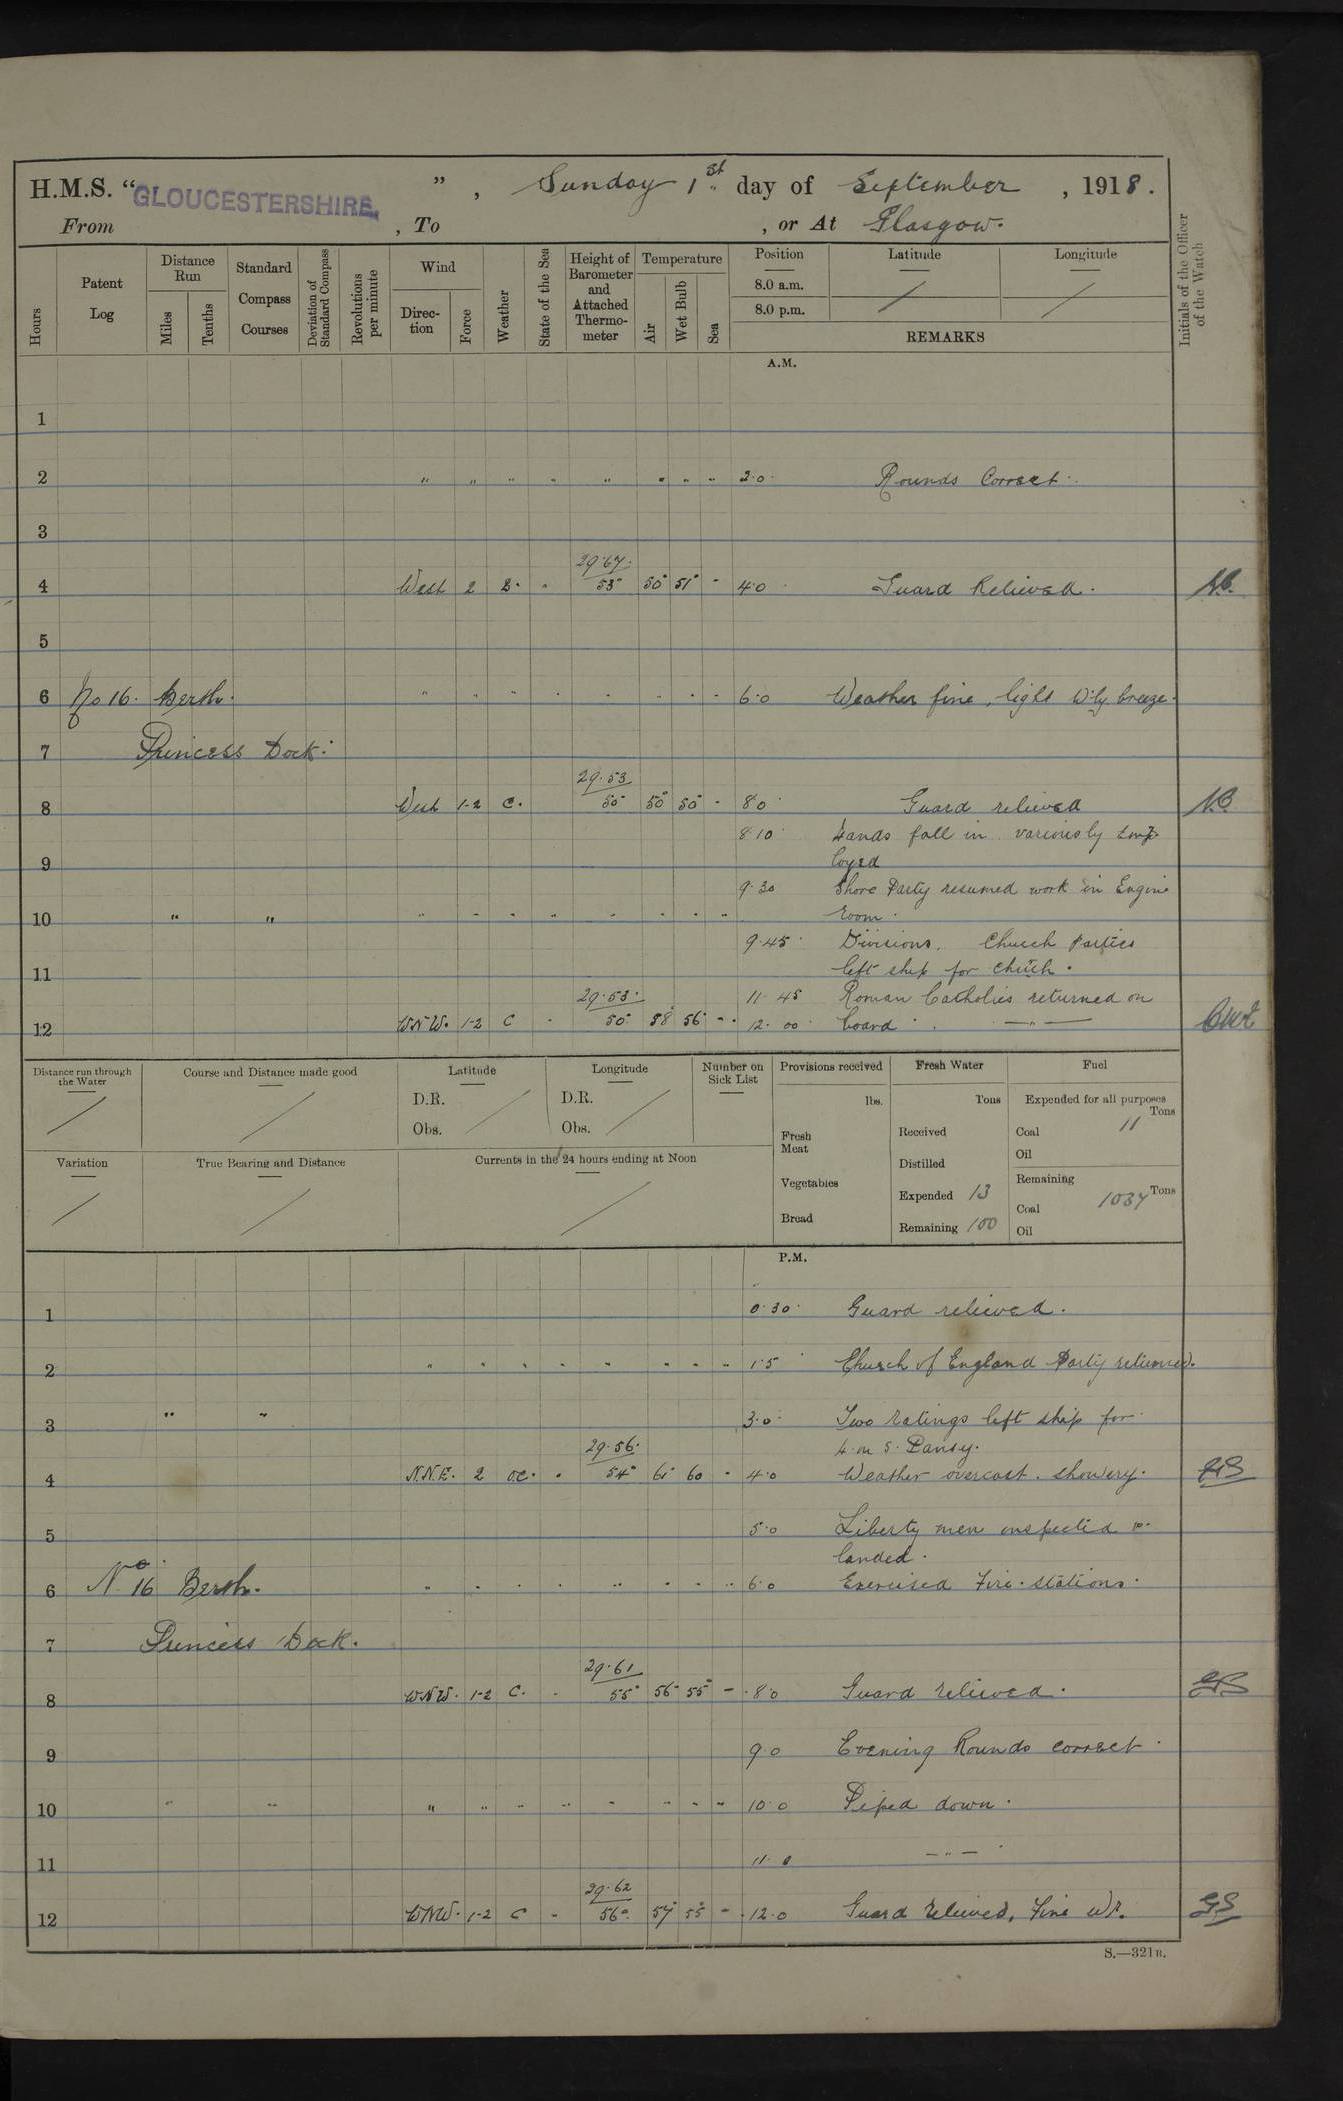 H.M.S. “GLOUCESTERSHIRE.” , Sunday 1st day of September , 1918.
From , To , or At Glasgow.
Hours
Patent Log
Distance Run
Miles
Tenths
Standard Compass Courses
Deviation of Standard Compass
Revolutions per minute
Wind
Direction
Force
Weather
State of the Sea
Height of Barometer and Attached Thermometer
Temperature
Air
Wet Bulb
Sea
Position
8.0 a.m.
8.0 p.m.
Latitude
Longitude
REMARKS
Initials of the Officer of the Watch
A.M.
1
2 " " " " " " " " 2.0 Rounds Correct.
3
29.67
4 West 2 B. " 53° 50° 51° - 4.0 Guard Relieved.
5
6 No 16. Berth. " " " " " " " " 6.0 Weather fine, light W'ly breeze.
7 Princess Dock.
29.53
8 West 1-2 C. 50° 50° 50° - 8.0 Guard relieved
8.10 Hands fall in variously Emp-
9 loyed
9.30 Shore Party resumed work in Engine
10 " " " " " " " " " " room.
9.45 Divisions. Church Parties
11 left ship for church.
29.53. 11.45 Roman Catholics returned on
12 WNW. 1-2 C - 50° 58° 56° - 12.00 board. — " —
Distance run through the Water
Course and Distance made good
Latitude
D.R.
Obs.
Longitude
D.R.
Obs.
Number on Sick List
Provisions received
lbs.
Fresh Meat
Vegetables
Bread
Fresh Water
Tons
Received
Distilled
Expended 13
Remaining 100
Fuel
Expended for all purposes
Tons
Coal 11
Oil
Remaining
Coal 1037 Tons
Oil
Variation
True Bearing and Distance
Currents in the 24 hours ending at Noon
P.M.
1 0.30. Guard relieved.
2 " " " " " " " " 1.5 Church of England Party returned.
3 " " 3.0 Two ratings left ship for
29.56. H.M.S. Pansy.
4 N.N.E. 2 oc. " 54° 61° 60 - 4.0 Weather overcast. showery.
5 5.0 Liberty men inspected &
landed.
6 No 16 Berth. " " " " " " " " 6.0 Exercised Fire-stations.
7 Princess Dock.
29.61
8 WNW. 1-2 C. - 55° 56° 55° - 8.0 Guard relieved.
9 9.0 Evening Rounds correct.
10 " " " " " " " " " " 10.0 Piped down.
11 11.0 — " —
29.62
12 WNW. 1-2 C - 56° 57° 55° - 12.0 Guard relieved, Fine Wr.
S.—321B.